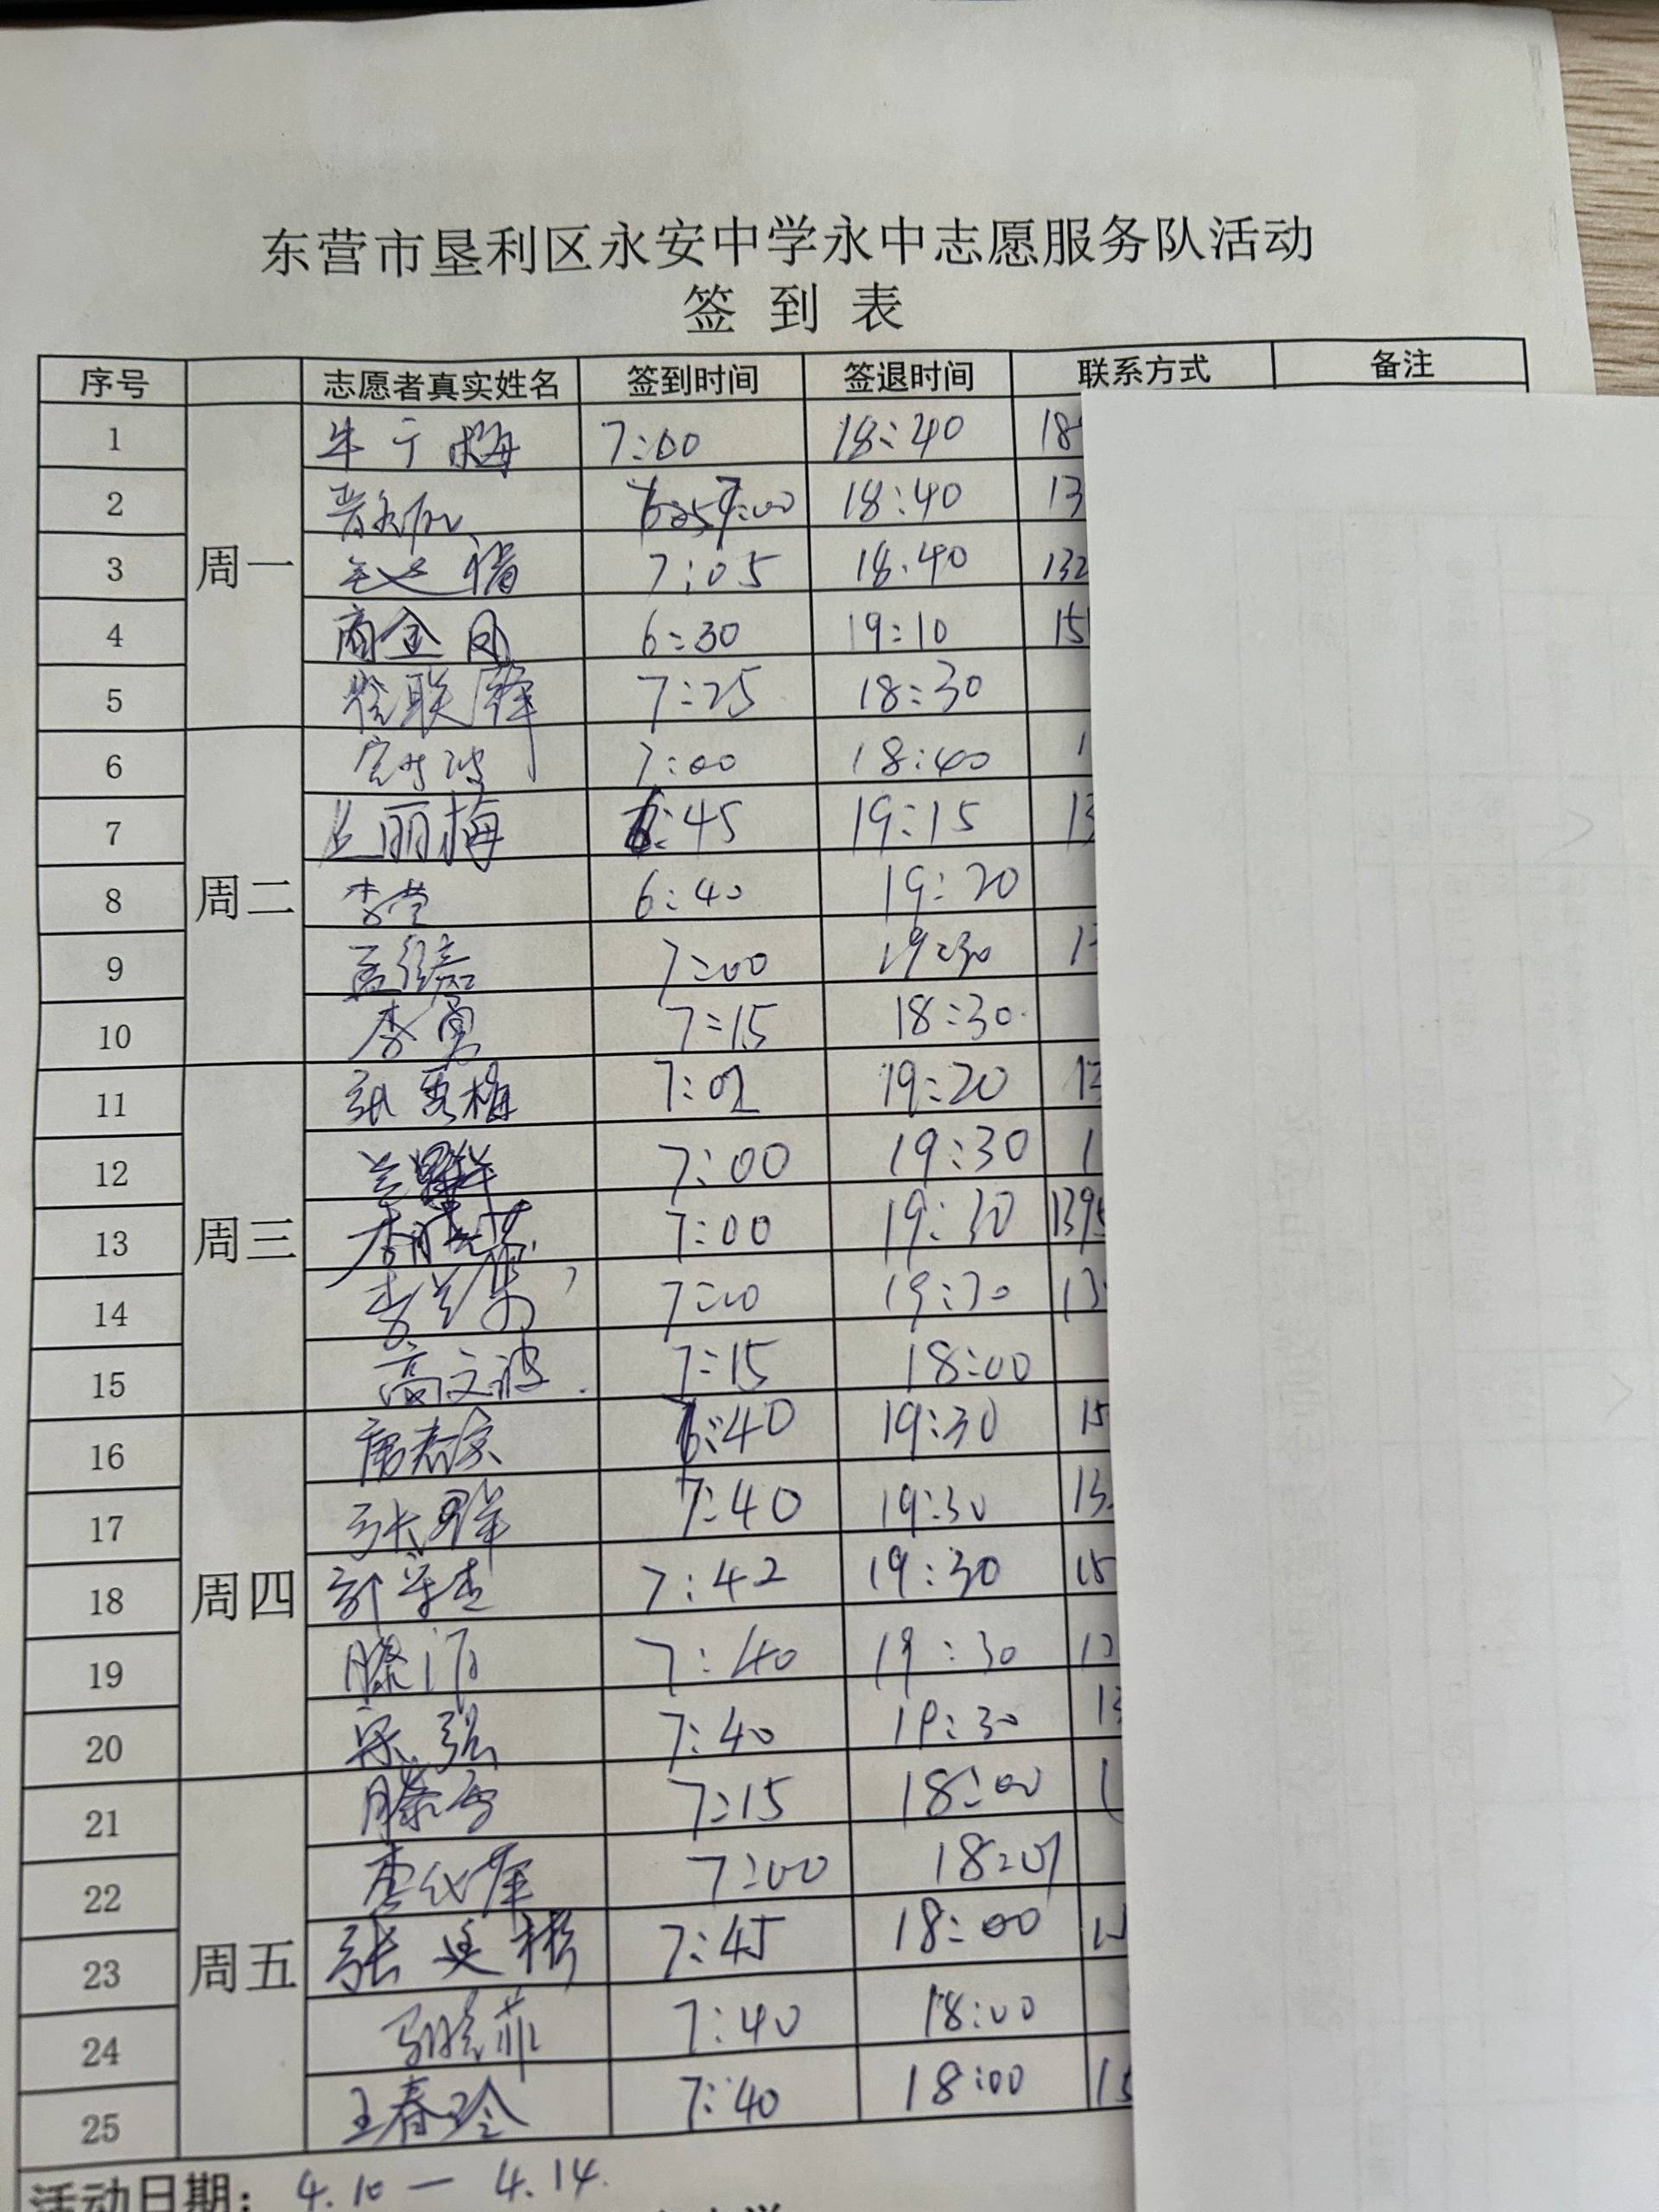 东营市垦利区永安中学永中志愿服务队活动
签 到 表
序号 志愿者真实姓名 签到时间 签退时间 联系方式 备注
周一
1 牛 梅 7:00 18:40 18
2 7:00 18:40 13
3 7:05 18:40 132
4 商金凤 6:30 19:10 15
5 徐联锋 7:25 18:30
周二
6 7:00 18:40 1
7 丘丽梅 6:45 19:15 13
8 李莹 6:40 19:20
9 孟 19:30 7:00 1
10 李勇 7:15 18:30
周三
11 张秀梅 7:01 19:20 13
12 兰群 7:00 19:30 1
13 李晓芬 7:00 19:30 1395
14 李兰 7:00 19:30 13
15 高文波 7:15 18:00
周四
16 6:40 19:30 15
17 张群 7:40 19:30 13
18 7:42 19:30 15
19 滕 7:40 19:30 13
20 宋强 7:40 19:30 13
周五
21 滕 7:15 18:00 1
22 7:00 18:01
23 张美彬 7:45 18:00
24 马晓菲 7:40 18:00
25 王春玲 7:40 18:00 15
活动日期：4.10 — 4.14.